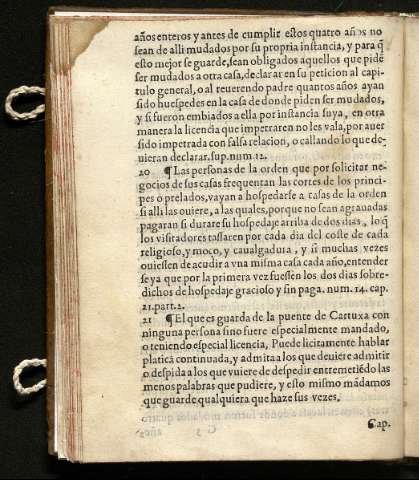 años enteros y antes de cumplir estos quatro años no
sean de alli mudados por su propria instancia, y para q̃
esto mejor se guarde, sean obligados aquellos que pidẽ
ser mudados a otra casa, declarar en su peticion al capi-
tulo general, o al reuerendo padre quantos años ayan
sido huespedes en la casa de donde piden ser mudados,
y si fueron embiados a ella por instancia suya, en otra
manera la licencia que impetraren no les vala, por auer
sido impetrada con falsa relacion, o callando lo que de-
uieran declarar. sup. num. 12.
20 ¶ Las personas de la orden que por solicitar ne-
gocios de sus casas frequentan las cortes de los princi-
pes o prelados, vayan a hospedarse a casas de la orden
si alli las ouiere, a las quales, porque no sean agrauadas
pagaran si durare su hospedaje arriba de dos dias, lo q̃
los visitadores tassaren por cada dia del coste de cada
religioso, y moço, y caualgadura, y si muchas vezes
ouiessen de acudir a vna misma casa cada año, entender
se ya que por la primera vez fuessen los dos dias sobre-
dichos de hospedaje gracioso y sin paga. num. 14. cap.
21. part. 2.
21 ¶ El que es guarda de la puente de Cartuxa con
ninguna persona sino fuere especialmente mandado,
o teniendo especial licencia, Puede licitamente hablar
platica continuada, y admita a los que deuiere admitir
o despida a los que vuiere de despedir entremetiẽdo las
menos palabras que pudiere, y esto mismo mãdamos
que guarde qualquiera que haze sus vezes.
Cap.